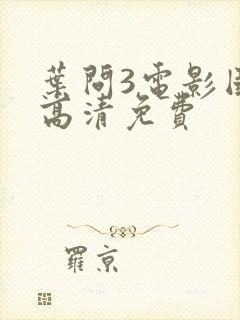 葉問3電影国
高清免費
羅京